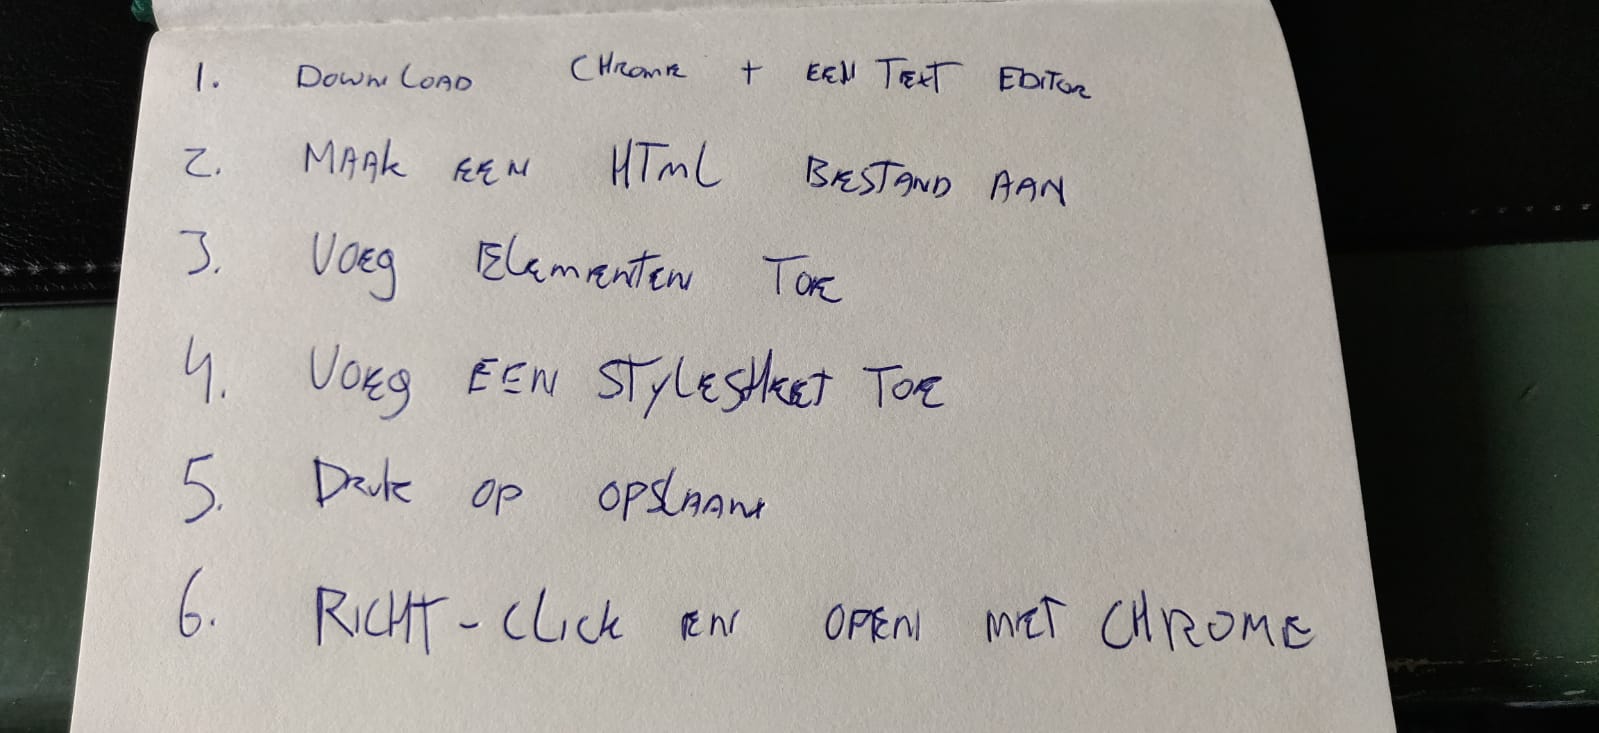 1. DOWNLOAD CHROME + EEN TEXT EDITOR
2. MAAK EEN HTML BESTAND AAN
3. VOEG ELEMENTEN TOE
4. VOEG EEN STYLESHEET TOE
5. DRUK OP OPSLAAN
6. RICHT-CLICK EN OPEN MET CHROME